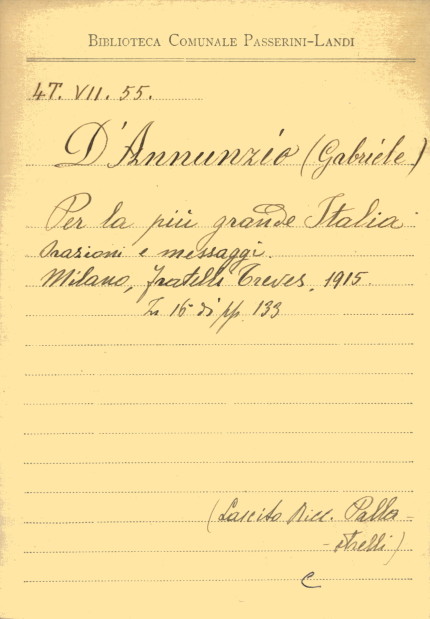 BIBLIOTECA COMUNALE PASSERINI-LANDI
4T. VII. 55.
D'Annunzio (Gabriele)
Per la più grande Italia
Orazioni e messaggi.
Milano, fratelli Treves, 1915.
In 16 di pp. 133
(Lascito Ricc. Palla-
-strelli)
C